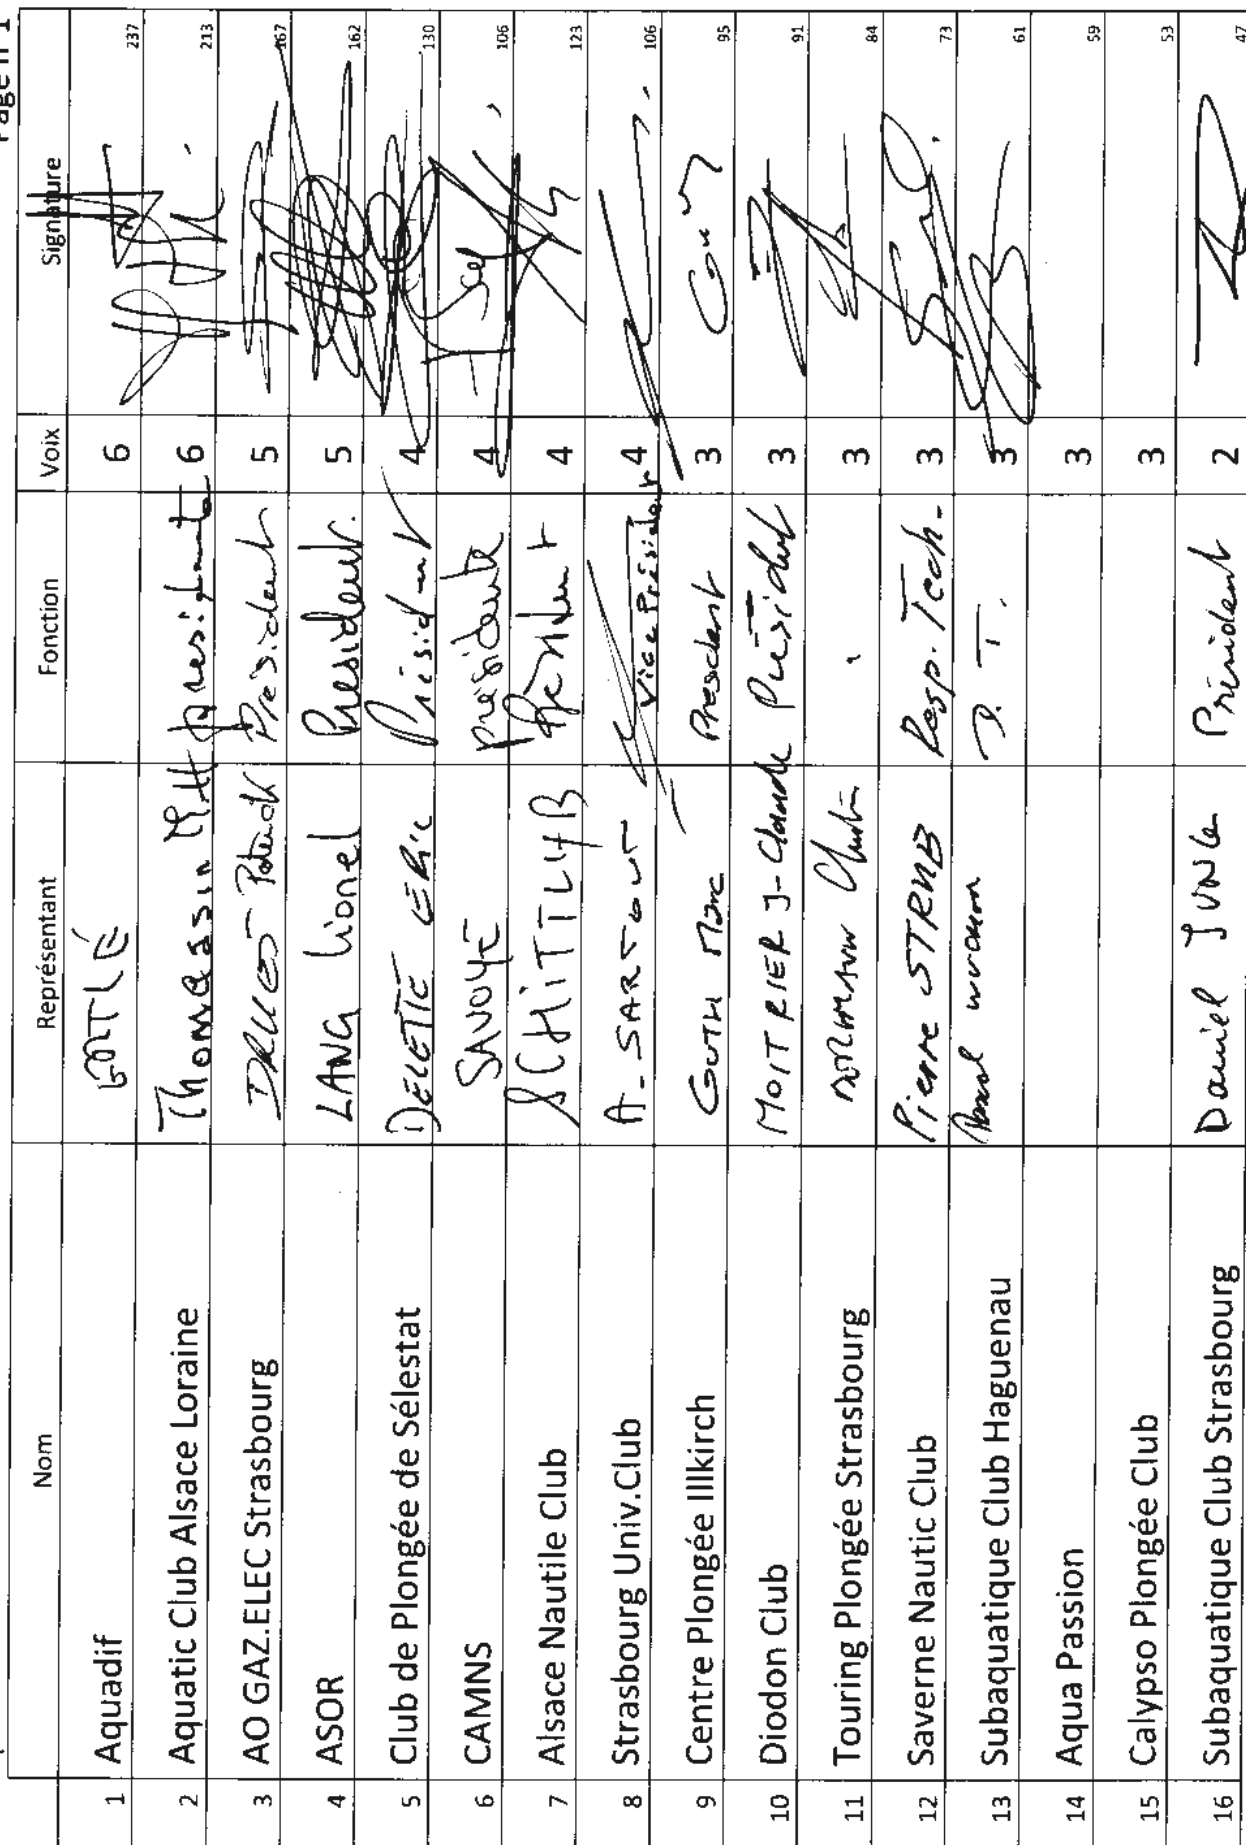 Page n°1
Nom Représentant Fonction Voix Signature
1 Aquadif 6 237
2 Aquatic Club Alsace Loraine Thomassin présidente 6 213
3 AO GAZ.ELEC Strasbourg Patrick Président 5 167
4 ASOR LANG Lionel President. 5 162
5 Club de Plongée de Sélestat DELETTE ERic Président 4 130
6 CAMNS SAVOYE présidente 4 106
7 Alsace Nautile Club Président 4 123
8 Strasbourg Univ.Club A. Vice Président 4 106
9 Centre Plongée Illkirch GUTH Marc President 3 95
10 Diodon Club MOITRIER J-Claude Président 3 91
11 Touring Plongée Strasbourg 3 84
12 Saverne Nautic Club Pierre STRUB Resp. Tech. 3 73
13 Subaquatique Club Haguenau D.T. 3 61
14 Aqua Passion 3 59
15 Calypso Plongée Club 3 53
16 Subaquatique Club Strasbourg Daniel JUNG Président 2 47